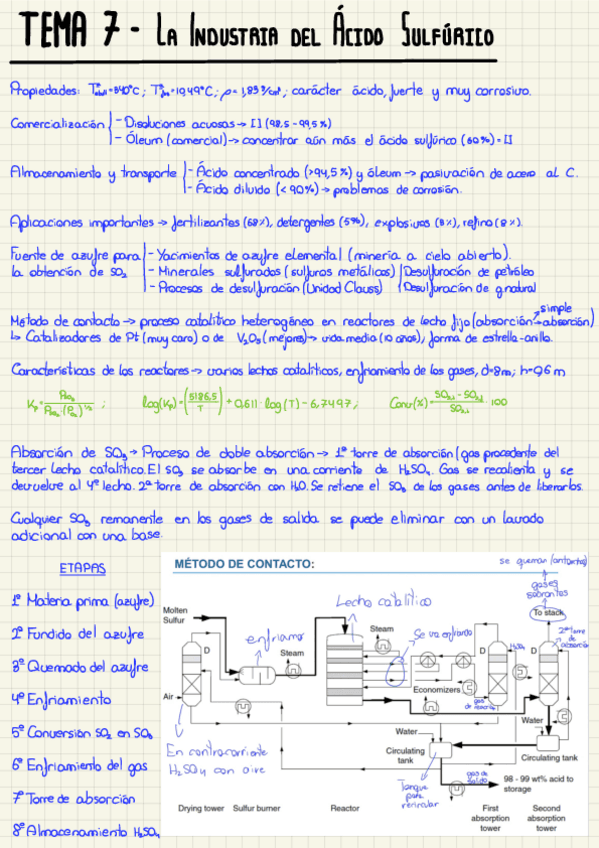 TEMA 7 - LA INDUSTRIA DEL ÁCIDO SULFÚRICO
Propiedades: Tªebull=340ºC; Tªfus=10,49ºC; ρ=1,83 g/cm³; carácter ácido, fuerte y muy corrosivo.
Comercialización
- Disoluciones acuosas → [] (98,5-99,5%)
- Óleum (comercial) → concentrar aún más el ácido sulfúrico (60%) = []
Almacenamiento y transporte
- Ácido concentrado (>94,5%) y óleum → pasivación de acero al C.
- Ácido diluido (<90%) → problemas de corrosión.
Aplicaciones importantes → fertilizantes (68%), detergentes (5%), explosivos (8%), refino (8%).
Fuente de azufre para la obtención de SO₂
- Yacimientos de azufre elemental (minería a cielo abierto).
- Minerales sulfurados (sulfuros metálicos)
- Procesos de desulfuración (Unidad Clauss)
Desulfuración de petróleo
Desulfuración de g.natural
Método de contacto → proceso catalítico heterogéneo en reactores de lecho fijo (absorción → absorción)
simple
↳ Catalizadores de Pt (muy caro) o de V₂O₅ (mejores) → vida media (10 años), forma de estrella-anillo.
Características de los reactores → varios lechos catalíticos, enfriamiento de los gases, d=8m; h=0,6 m
log(Kp) = (5186,5/T) + 0,611·log(T) - 6,7497;
Absorción de SO₃ → Proceso de doble absorción → 1ª torre de absorción (gas procedente del
tercer lecho catalítico. El SO₃ se absorbe en una corriente de H₂SO₄. Gas se recalienta y se
devuelve al 4º lecho. 2ª torre de absorción con H₂O. Se retiene el SO₃ de los gases antes de liberarlos.
Cualquier SO₃ remanente en los gases de salida se puede eliminar con un lavado
adicional con una base.
ETAPAS
1º Materia prima (azufre)
2º Fundido del azufre
3º Quemado del azufre
4º Enfriamiento
5º Conversión SO₂ en SO₃
6º Enfriamiento del gas
7º Torre de absorción
8º Almacenamiento H₂SO₄
MÉTODO DE CONTACTO:
se queman (antorcha)
gases sobrantes
To stack
Lecho catalítico
Molten Sulfur
enfriamo
Steam
Steam
Se va enfriando
2ª torre de absorción
D
D
D
H₂SO₄
Air
Economizers
gas de reacción
En contracorriente
H₂SO₄ con aire
Water
Water
Circulating tank
Circulating tank
Tanque para recircular
gas de salida
98 - 99 wt% acid to storage
Drying tower
Sulfur burner
Reactor
First absorption tower
Second absorption tower